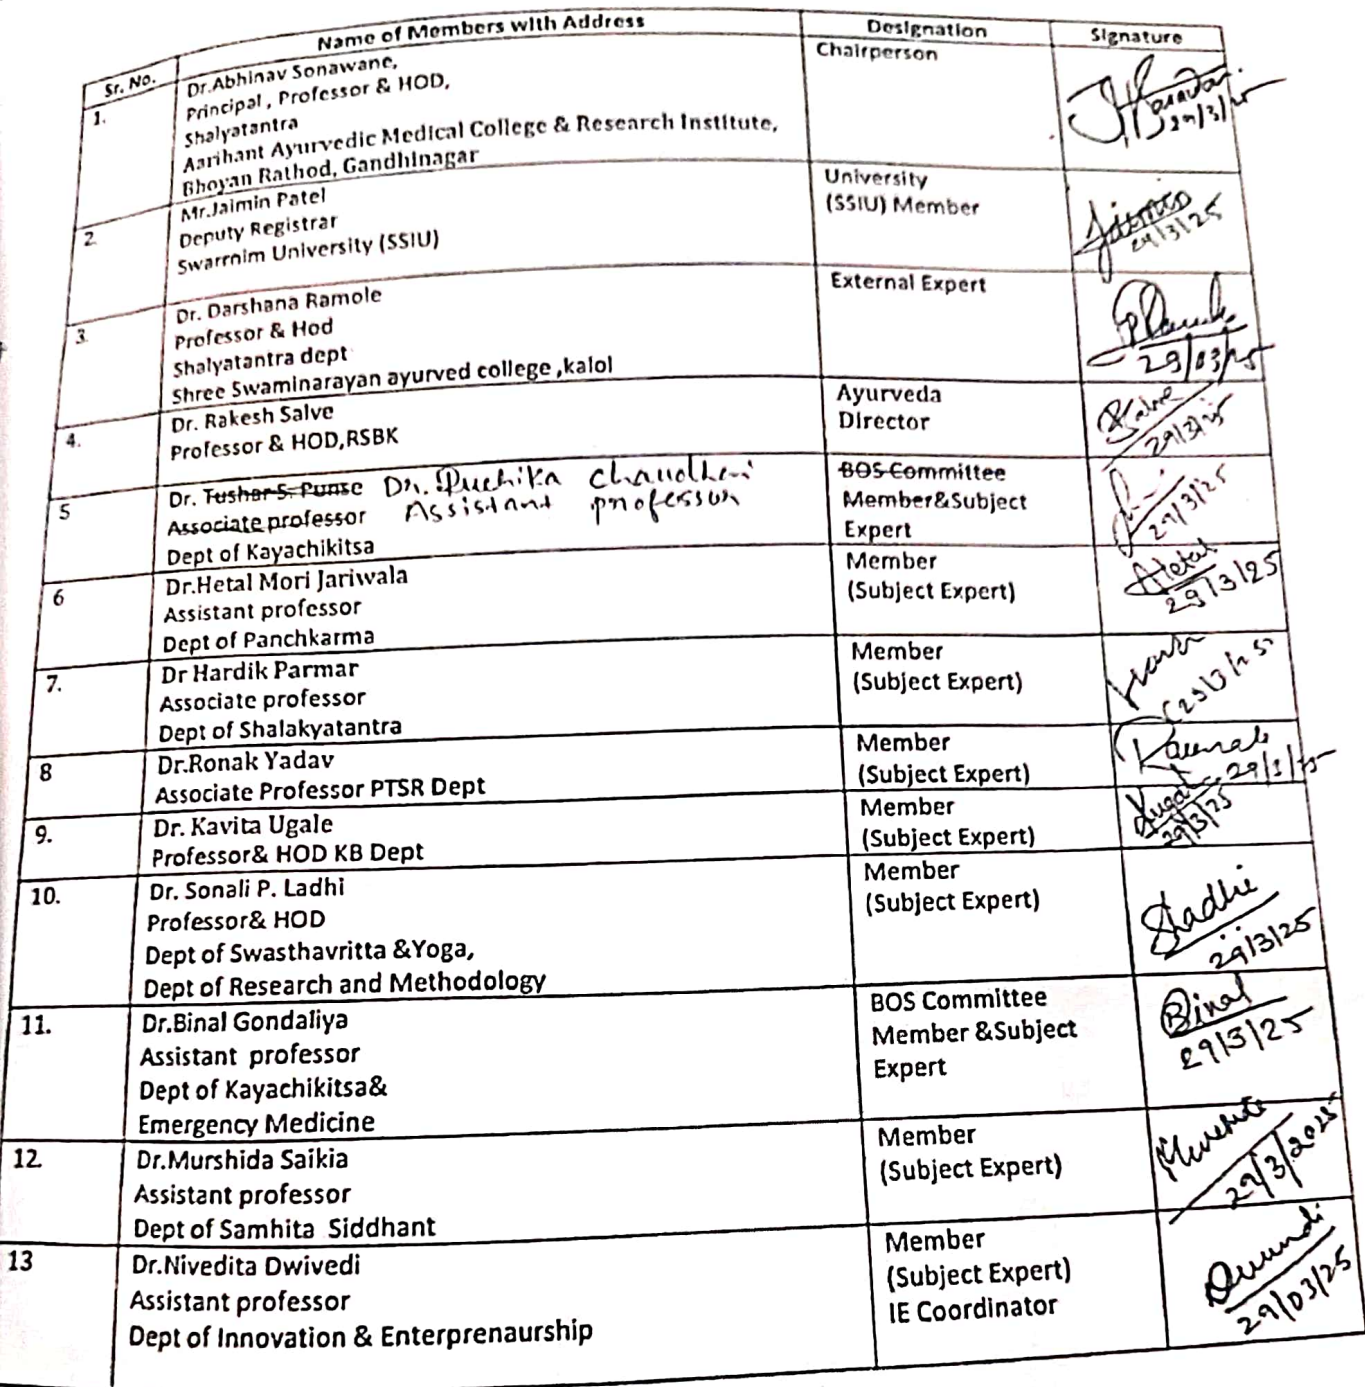 Sr. No.
Name of Members with Address
Designation
Signature
1.
Dr.Abhinav Sonawane,
Principal, Professor & HOD,
Shalyatantra
Aarihant Ayurvedic Medical College & Research Institute,
Bhoyan Rathod, Gandhinagar
Chairperson
29/3/25
2.
Mr.Jaimin Patel
Deputy Registrar
Swarrnim University (SSIU)
University
(SSIU) Member
29/3/25
3.
Dr. Darshana Ramole
Professor & Hod
Shalyatantra dept
Shree Swaminarayan ayurved college ,kalol
External Expert
29/03/25
4.
Dr. Rakesh Salve
Professor & HOD,RSBK
Ayurveda
Director
29/3/25
5
Dr. Tushar S. Punse Dr. Ruchika Chaudhari
Associate professor Assistant professor
Dept of Kayachikitsa
BOS Committee
Member&Subject
Expert
29/3/25
6
Dr.Hetal Mori Jariwala
Assistant professor
Dept of Panchkarma
Member
(Subject Expert)
Hetal
29/3/25
7.
Dr Hardik Parmar
Associate professor
Dept of Shalakyatantra
Member
(Subject Expert)
29/3/25
8
Dr.Ronak Yadav
Associate Professor PTSR Dept
Member
(Subject Expert)
29/3/25
9.
Dr. Kavita Ugale
Professor& HOD KB Dept
Member
(Subject Expert)
29/3/25
10.
Dr. Sonali P. Ladhi
Professor& HOD
Dept of Swasthavritta &Yoga,
Dept of Research and Methodology
Member
(Subject Expert)
29/3/25
11.
Dr.Binal Gondaliya
Assistant professor
Dept of Kayachikitsa&
Emergency Medicine
BOS Committee
Member &Subject
Expert
Binal
29/3/25
12.
Dr.Murshida Saikia
Assistant professor
Dept of Samhita Siddhant
Member
(Subject Expert)
29/3/2025
13
Dr.Nivedita Dwivedi
Assistant professor
Dept of Innovation & Enterprenaurship
Member
(Subject Expert)
IE Coordinator
29/03/25